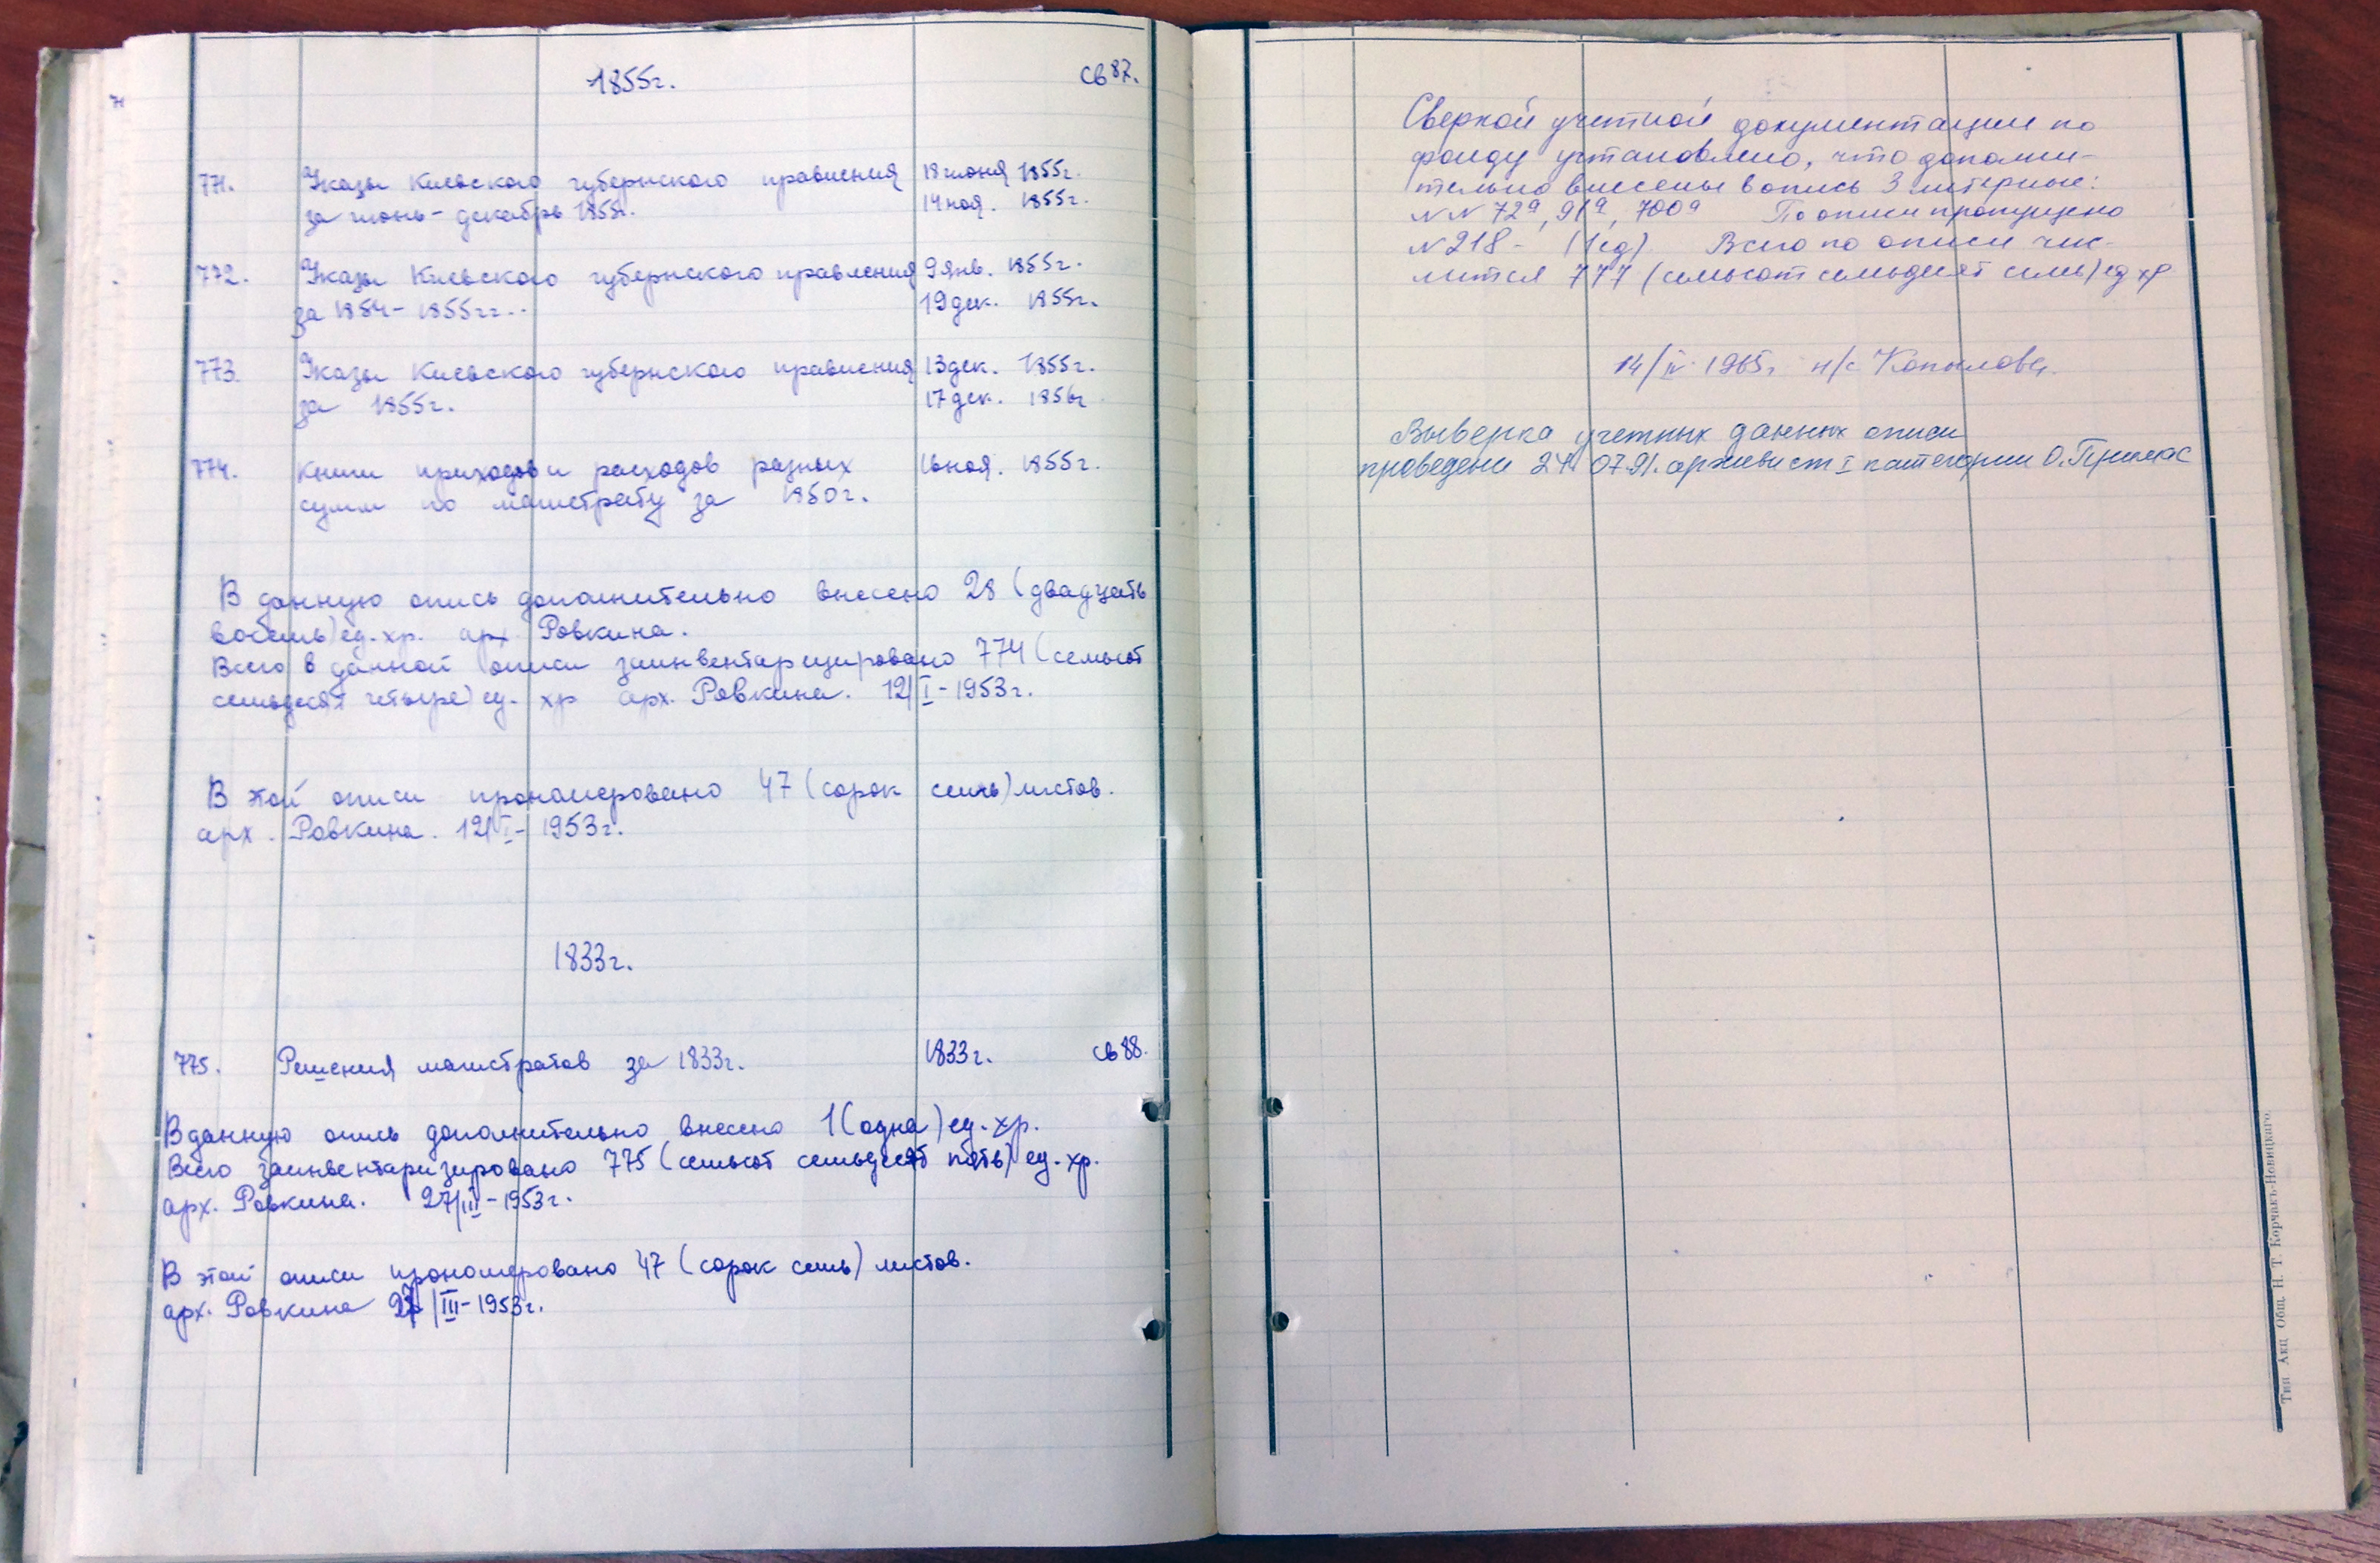 1855г.
св 87.
771. Указы Киевского губернского правления 18 июня 1855г.
за июнь - декабрь 1855г. 14 ноя. 1855г.
772. Указы Киевского губернского правления 9 янв. 1855г.
за 1854 - 1855гг. 19 дек. 1855г.
773. Указы Киевского губернского правления 13 дек. 1855г.
за 1855г. 17 дек. 1856г
774. Книги приходов и расходов разных ноя. 1855г.
сумм по магистрату за 1850г.
В данную опись дополнительно внесено 28 (двадцать
восемь) ед. хр. арх. Ровкина.
Всего в данной описи заинвентаризировано 774 (семьсот
семьдесят четыре) ед. хр арх. Ровкина. 12/I - 1953г.
В этой описи прономеровано 47 (сорок семь) листов.
арх. Ровкина. 12/I - 1953г.
1833г.
775. Решения магистратов за 1833г. 1833г. св 88.
В данную опись дополнительно внесено 1 (одна) ед. хр.
Всего заинвентаризировано 775 (семьсот семьдесят пять) ед. хр.
арх. Ровкина. 27/III - 1953г.
В этой описи прономеровано 47 (сорок семь) листов.
арх. Ровкина 27/III - 1953г.
Сверкой учетной документации по
фонду установлено, что дополни-
тельно внесены в опись 3 литерные:
NN 72а, 91а, 700а По описи пропущено
N 218 - (1 ед). Всего по описи чис-
лится 777 (семьсот семьдесят семь) ед хр
14/IV 1965г н/с Копылова
Выверка учетных данных описи
проведена 24.07.91. архивист I категории О. Примас
Тип Акц Общ. Н. Т. Корчакъ-Новицкаго.